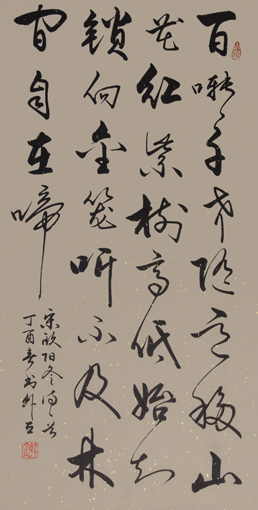 百啭千声随意移山
花红紫树高低始知
锁向金笼听不及林
间自在啼
宋欧阳修诗一首
丁酉春书